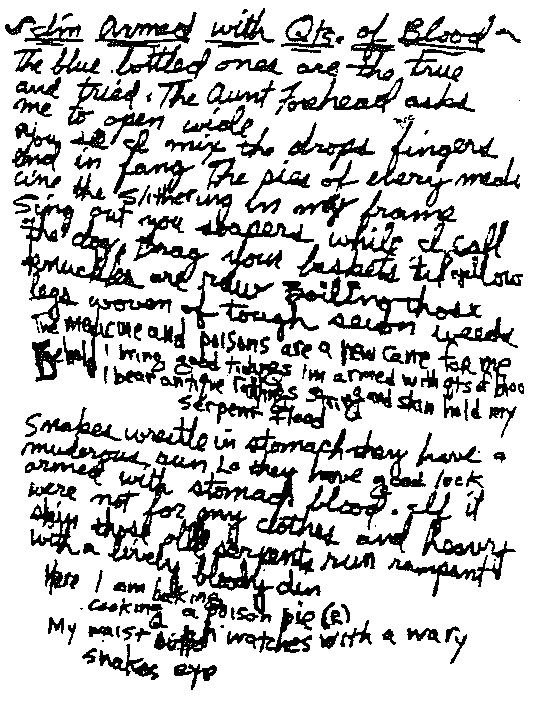 I'm Armed with Qts. of Blood
The blue bottled ones are the true
and tried. The Aunt Forehead asks
me to open wide
you see I mix the drops fingers
end in fang The pies of every medi
cine the slithering in my frame
Sing out you soapers while I call
the dog, Drag your baskets til yillow
knuckles are raw Boiling those
legs woven of tough seven weeds
The medicine and poisons are a new cane for me
Behold I bring good tidings I'm armed with qts of bloo
I bear antique string and skin hold my
Serpent flood
Snakes wrestle in stomach they have a
muderous run, Lo they have good lock
armed with stomach blood. If it
were not for my clothes and heavy
skin those serpents run rampant
with a lively bloody din
Here I am baking
cooking a poison pie (R)
My waist watches with a wary
snakes eye